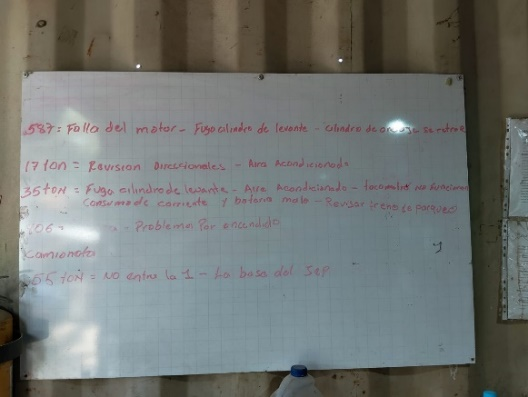 587= Falla del motor - Fuga cilindro de levante - cilindro de
17 TON = Revision Direccionales - Aire Acondicionado
35 TON = Fuga cilindro de levante - Aire Acondicionado - no funciona
Consumo de corriente y bateria mala - Revisar freno de parqueo
06= Problema Por encendido
Camioneta
55 TON = NO entra la 1 - La base del